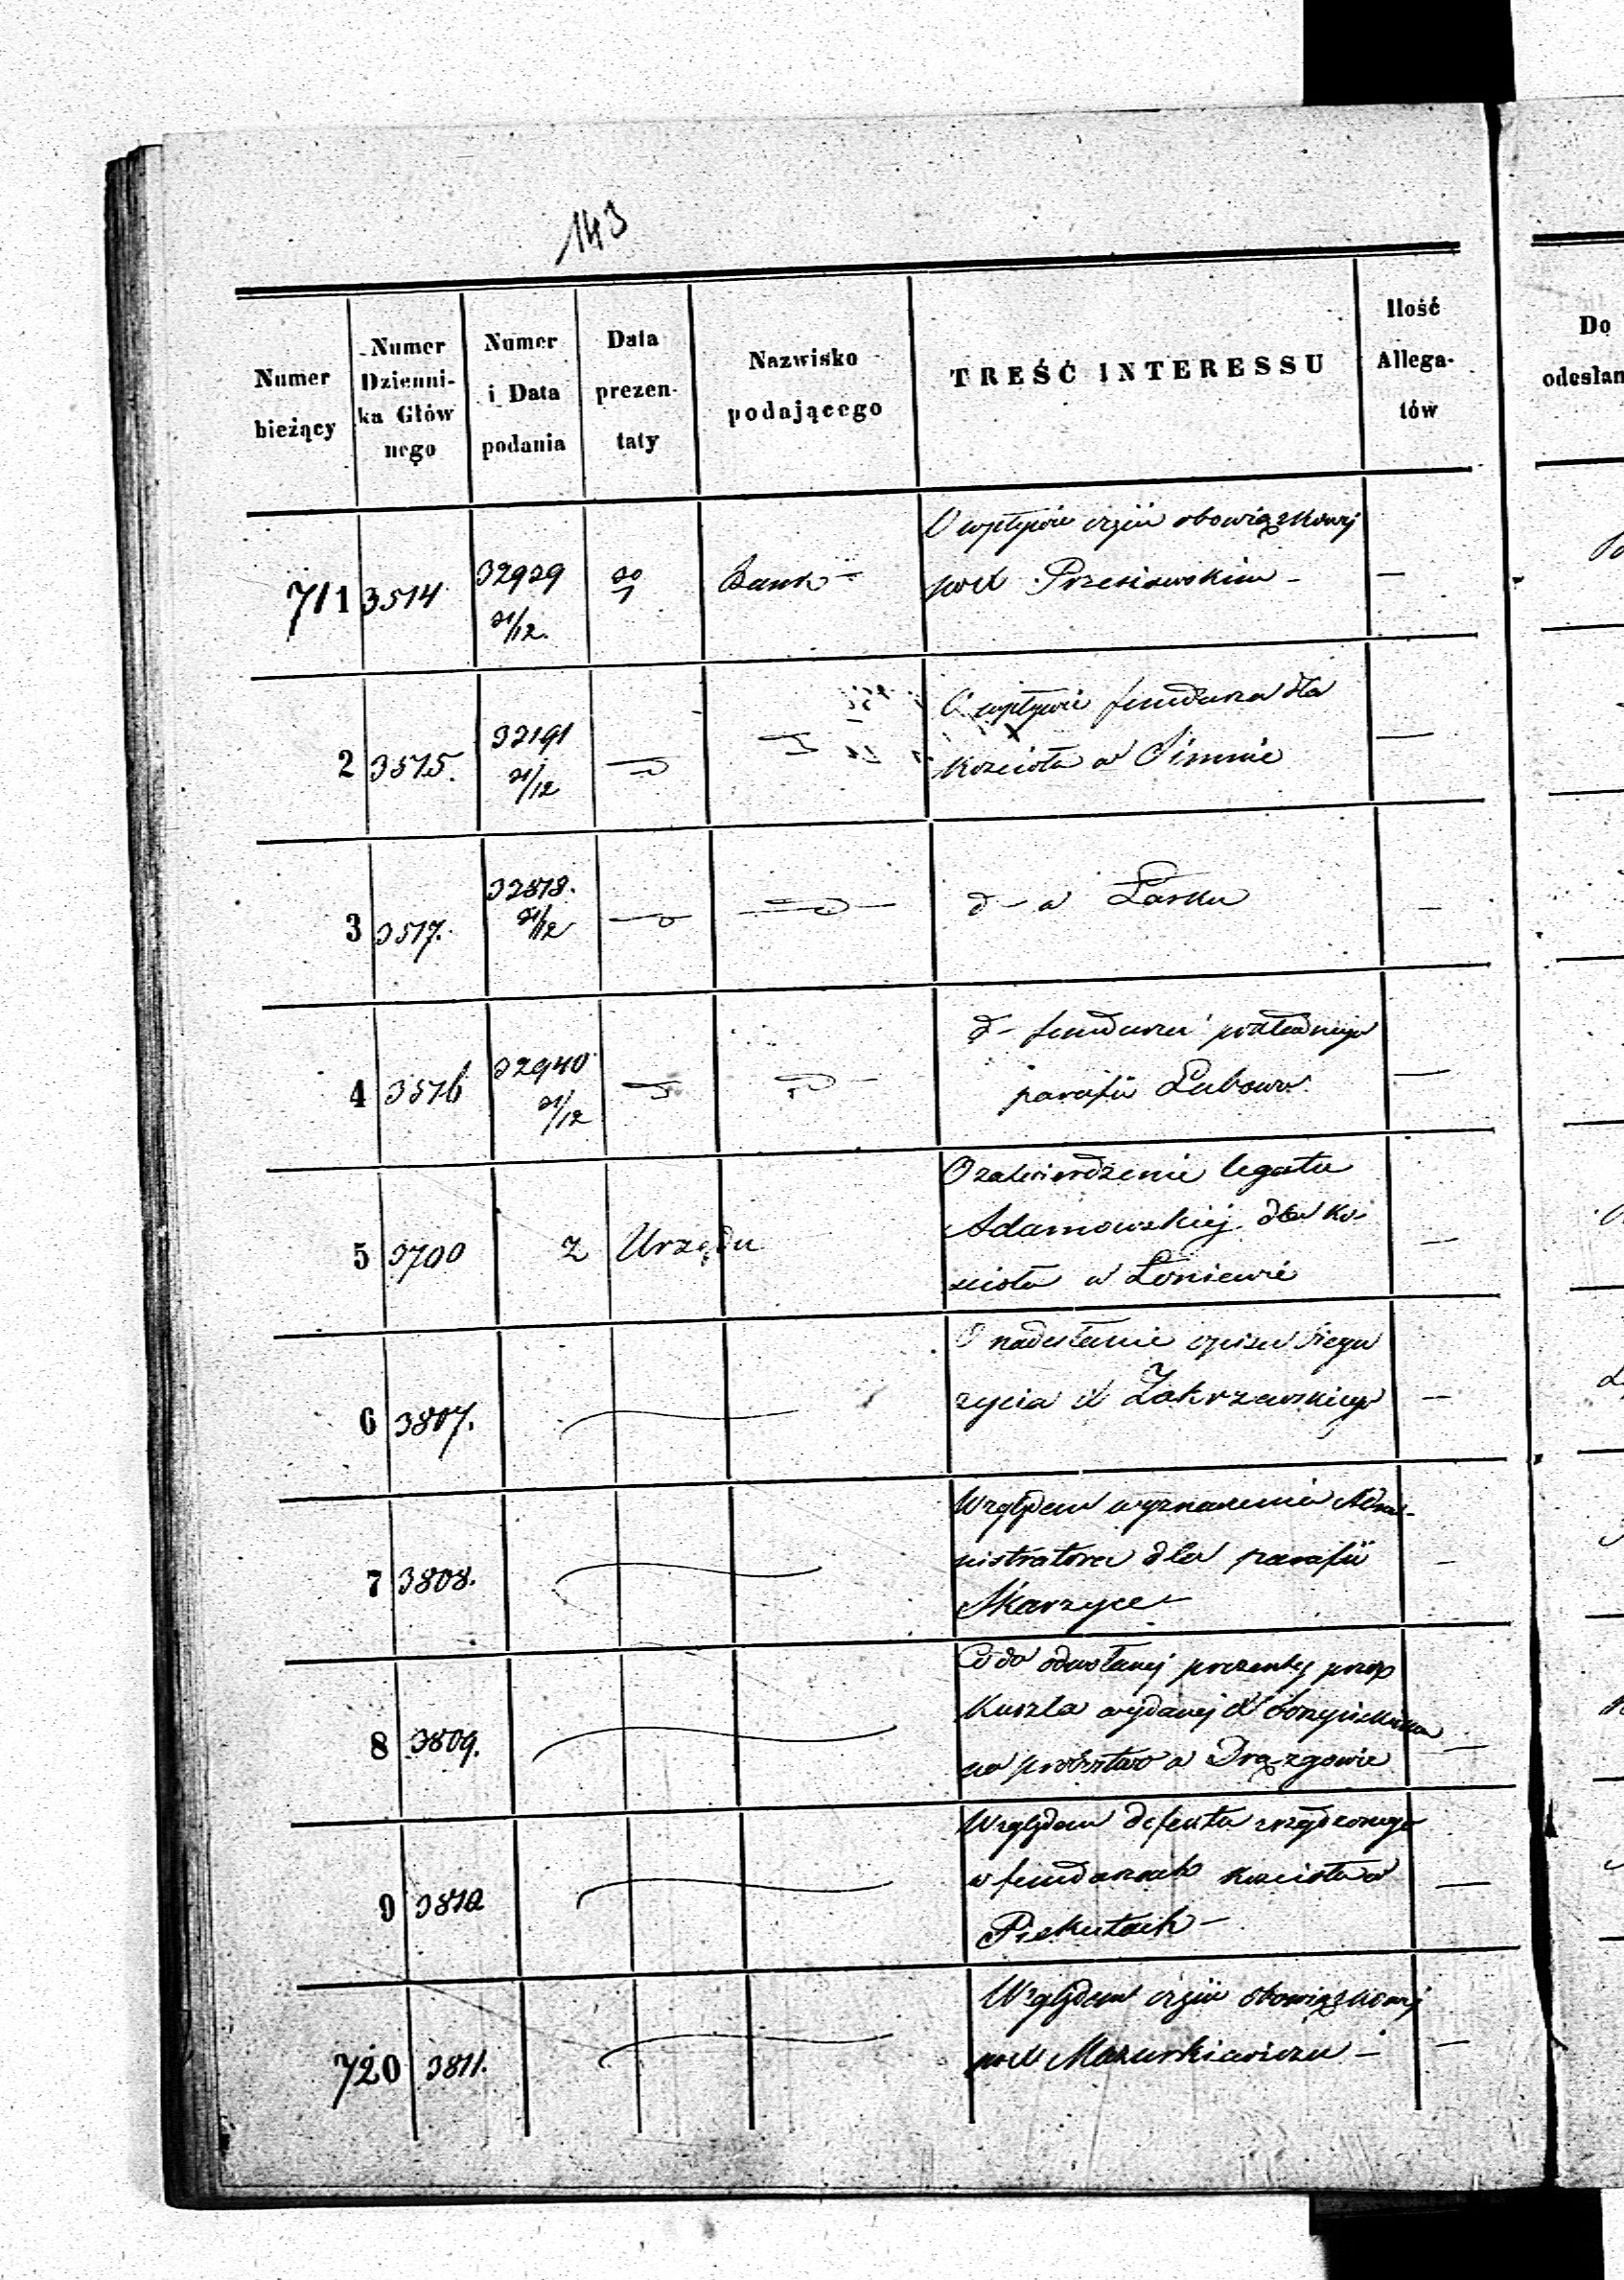 143
Numer bieżący
Numer Dzienni-ka Głównego
Numer i Data podania
Data prezen-taty
Nazwisko podającego
TREŚĆ INTERESSU
Ilość Allega-tów
Do odesłan
711 3514 32929 21/12. 20/1 Bank
O wpływie częśii obowiązkowej
po X Przesiawskim —
2 3515. 32191 21/12
O wpływie funduszu dla
kościoła w Simnie —
3 3517. 32878. 21/12
d — w Łasku —
4 3516 32940 21/12
d — funduszu
parafii Lubowo —
5 3700 z Urzędu
O zatwierdzenie legatu
Adamowskiej dla ko-
ścioła w Łoniewie —
6 3807.
O nadesłanie opisu biegu
życia X Zakrzewskiego —
7 3808.
Względem wyznaczenia Admi-
nistratora dla parafii
Skarzyce —
8 3809.
Co do odwołanej prezenty przez
Kuszla wydanej X
na probostwo w Drązgowie —
9 3812
Względem defektu zrządzonego
w funduszach kościoła w
Piekutach —
720 3811.
Względem częśii obowiązkowej
po X Mazurkiewiczu —